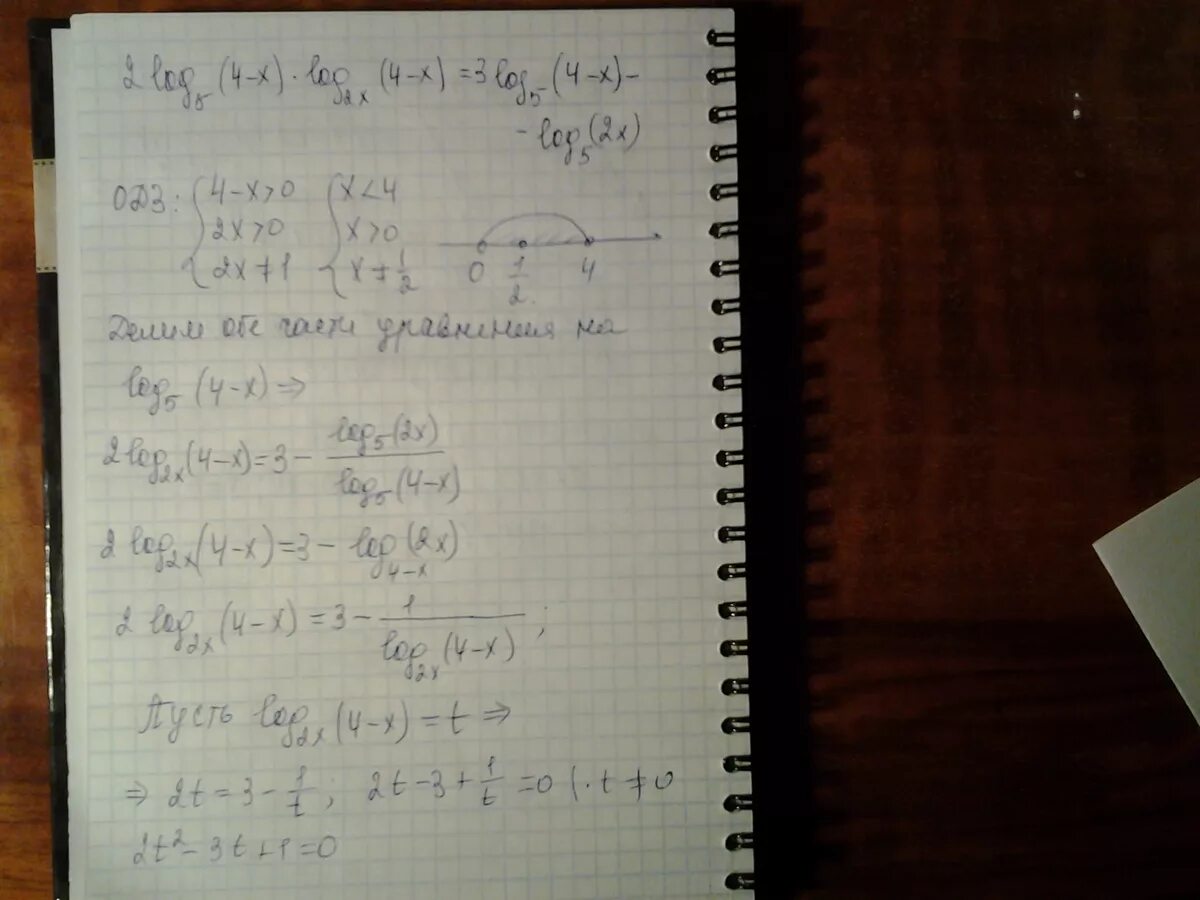 2 log₅ (4-x) · log₂ₓ (4-x) = 3 log₅ (4-x) -
- log₅ (2x)
ОДЗ: { 4-x>0 { x<4
2x>0 x>0
2x≠1 x≠1/2
0 1/2 4
Делим обе части уравнения на
log₅ (4-x) ⇒
2 log₂ₓ (4-x) = 3 - log₅(2x) / log₅(4-x)
2 log₂ₓ (4-x) = 3 - log₄₋ₓ (2x)
2 log₂ₓ (4-x) = 3 - 1 / log₂ₓ (4-x) ;
Пусть log₂ₓ (4-x) = t ⇒
⇒ 2t = 3 - 1/t ; 2t - 3 + 1/t = 0 | · t ≠ 0
2t² - 3t + 1 = 0